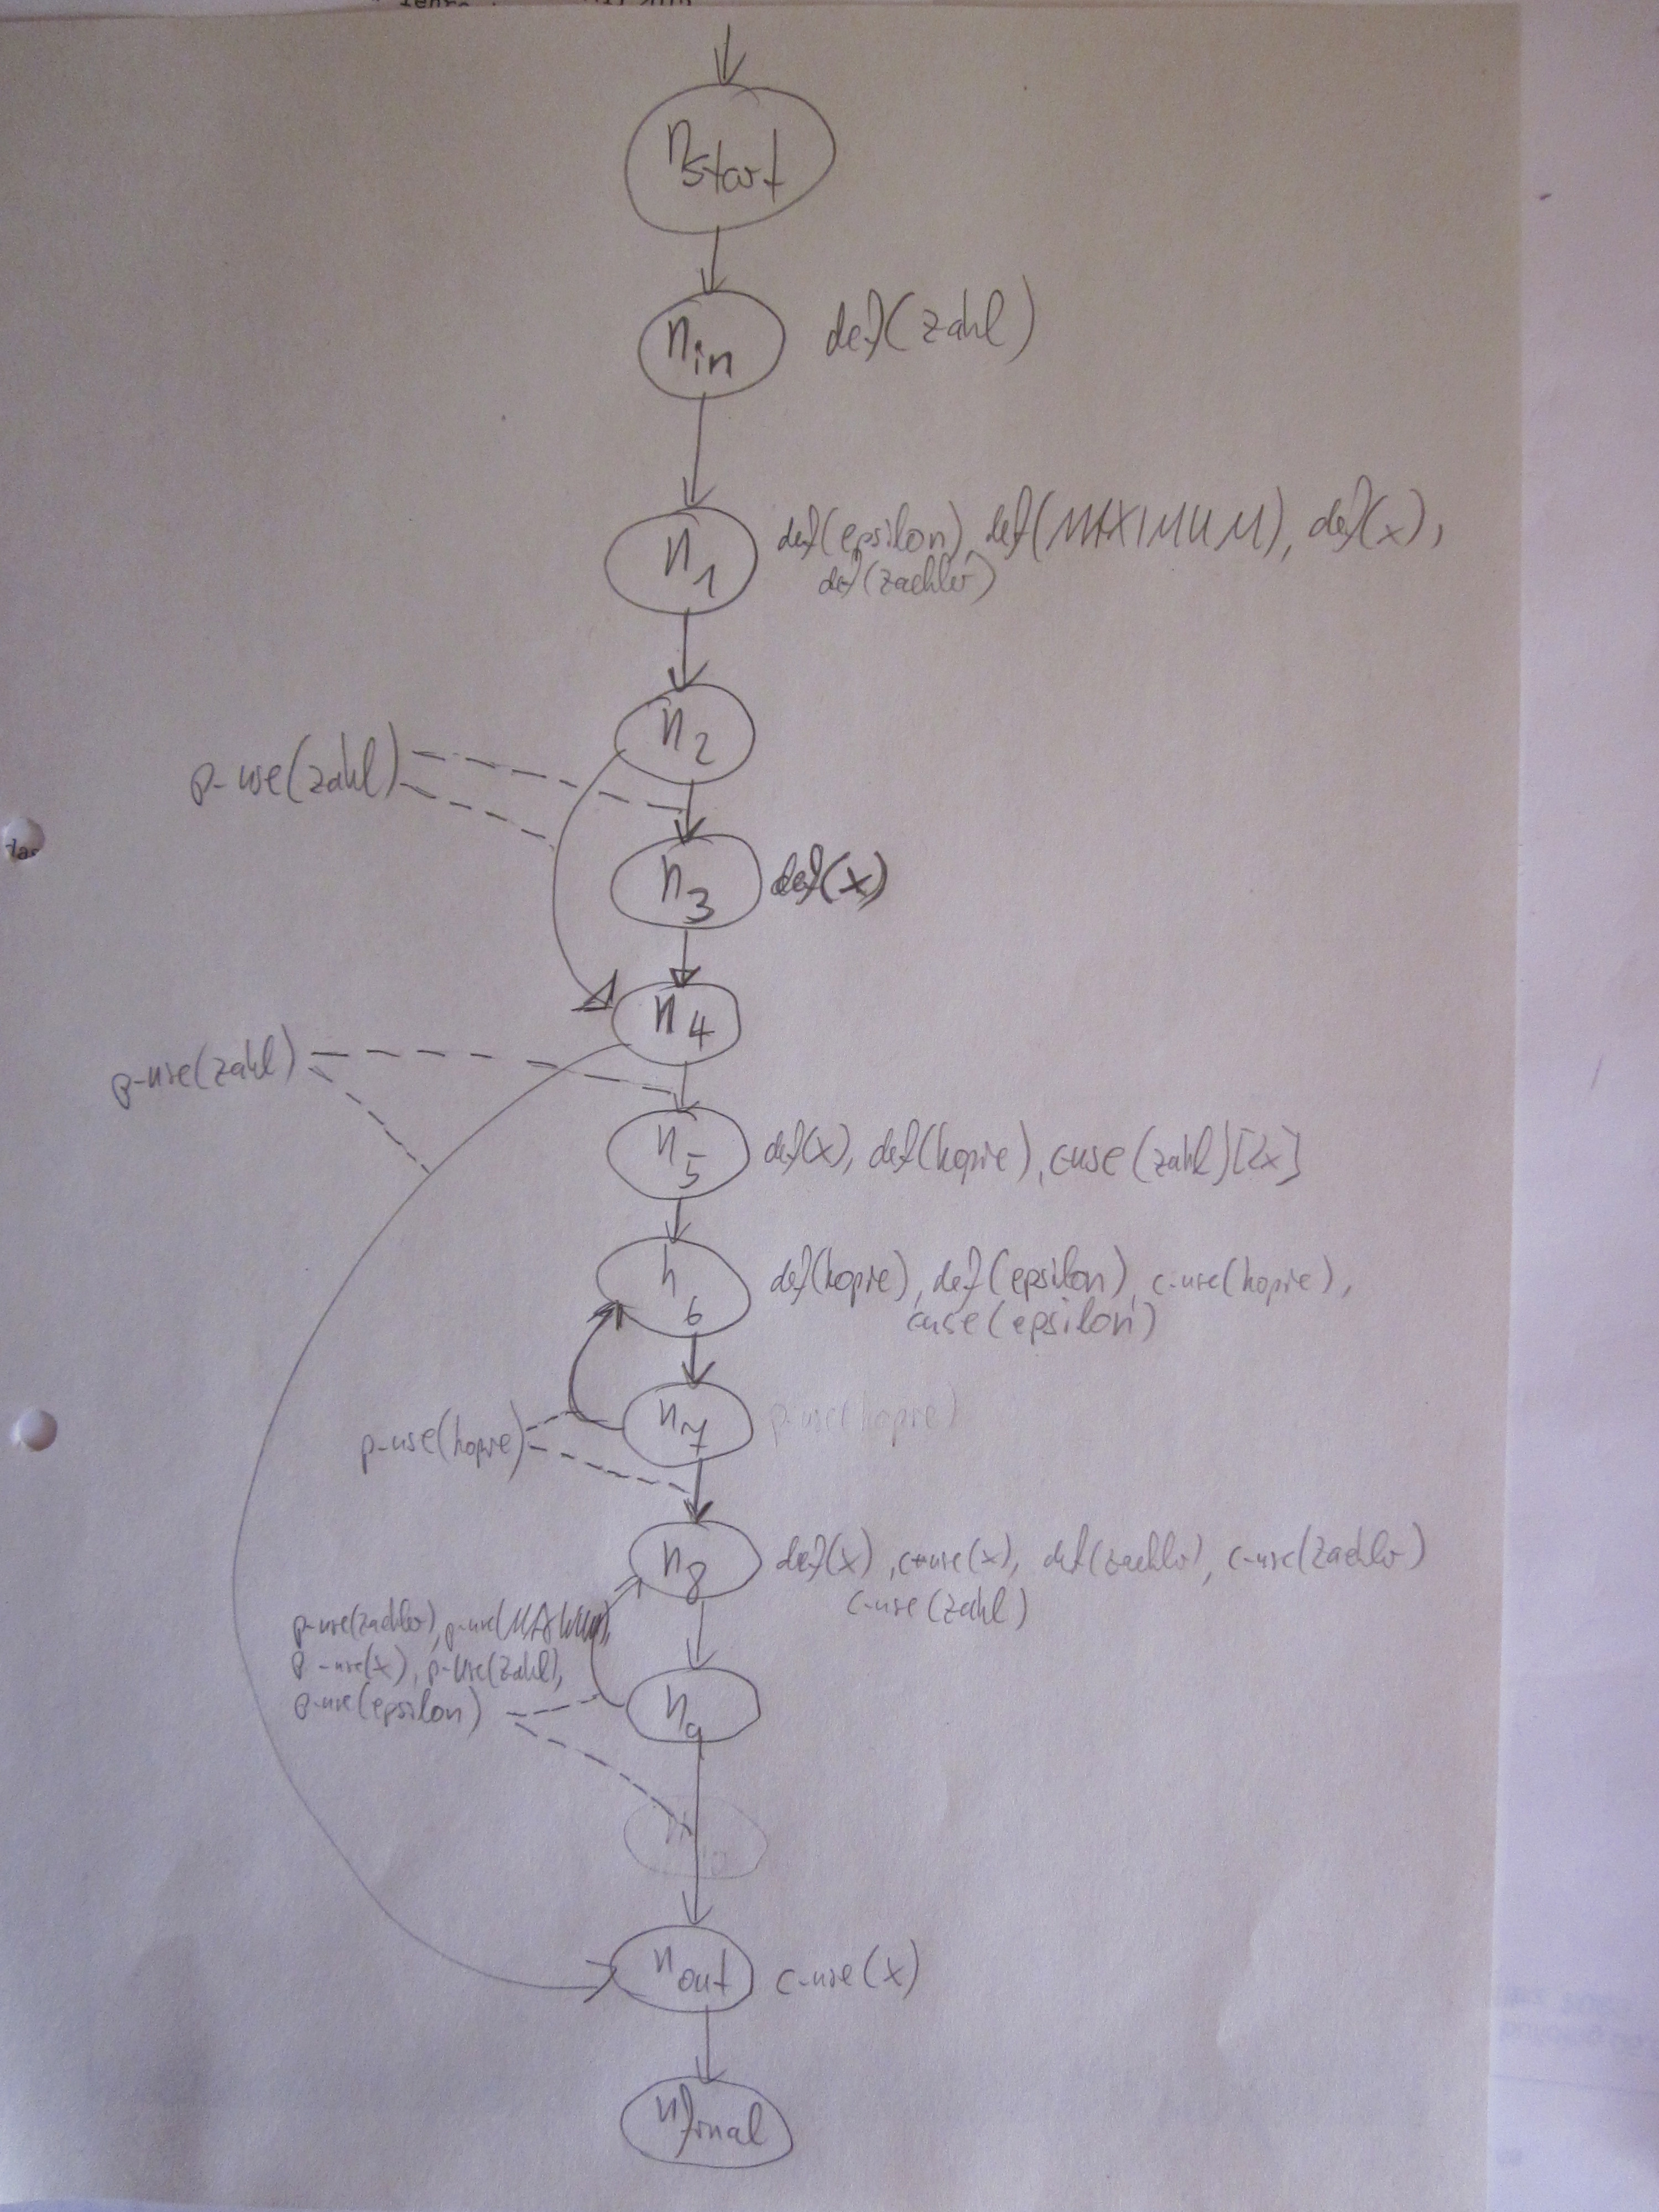 nstart
nin def(zahl)
n1 def(epsilon), def(MAXIMUM), def(x),
def(zaehler)
n2
p-use(zahl)
n3 def(x)
n4
p-use(zahl)
n5 def(x), def(kopie), c-use(zahl)[2x]
n6 def(kopie), def(epsilon), c-use(kopie),
c-use(epsilon)
n7 p-use(kopie)
p-use(kopie)
n8 def(x), c-use(x), def(zaehler), c-use(zaehler)
c-use(zahl)
p-use(zaehler), p-use(MAXIMUM),
p-use(x), p-use(zahl),
p-use(epsilon)
n9
nout c-use(x)
nfinal
das